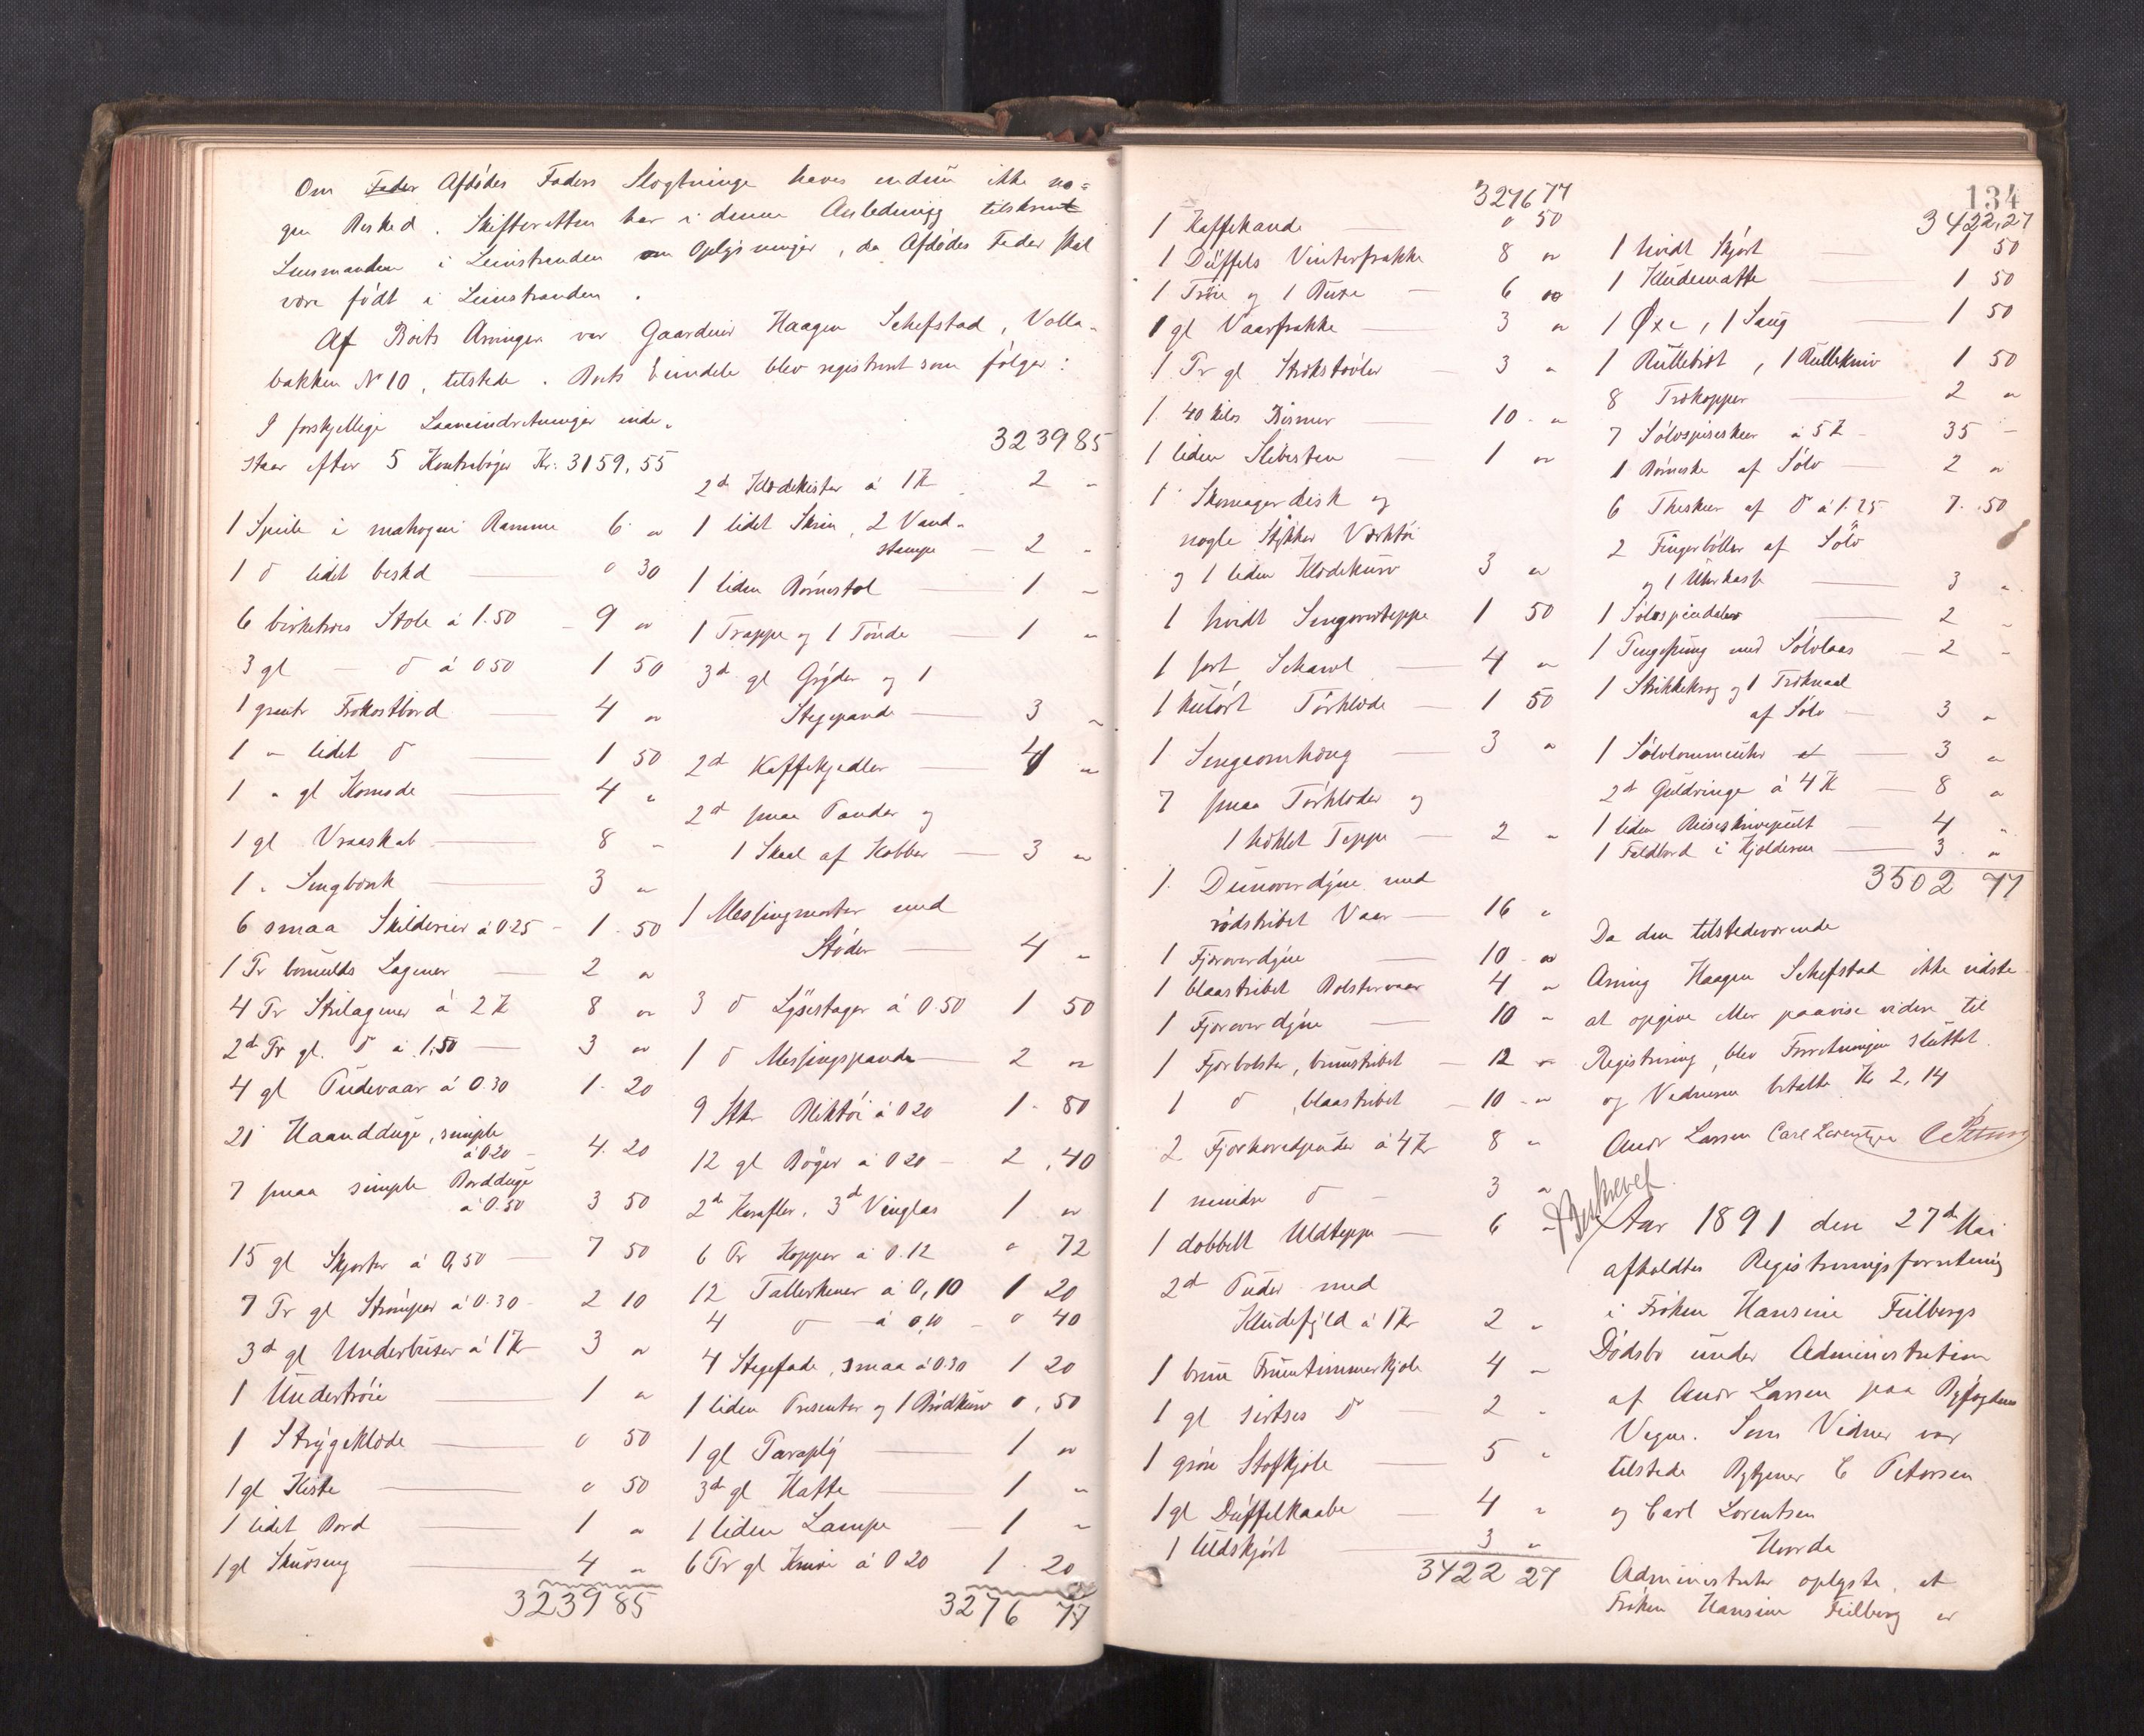 Om Fader Afdødes Faders Slægtninge haves endnu ikke no=
gen Besked. Skifteretten har i denne Anledning tilskrevet
Lensmanden i Leinstranden om Oplysninger, da Afdødes Fader skal
være født i Leinstranden.
Af Boets Arvinger var Gaardeier Haagen Schefstad, Volla-
bakken No 10, tilstede. Boets Eiendele blev registreret som følger:
I forskjellige Laaneindretninger inde-
staar efter 5 Kontrabøger Kr. 3159,55
1 Speile i mahogni Ramme 6 "
1 do lidet beskd 0 30
6 birketræs Stole á 1.50 9 "
3 gl — do á 0.50 1 50
1 Frokostbord 4 "
1 " lidet do 1 50
1 " gl Komode 4 "
1 gl Vraaskab 8 "
1 " Sengbænk 3 "
6 smaa Skilderier á 0.25 1.50
1 Pr bomulds Lagener 2 "
4 Pr Strilagener á 2 K 8 "
2de Pr gl. do á 1,50 3 "
4 gl Pudevaar á 0.30 1.20
21 Haandduge, simple
á 0.20 4.20
7 smaa simple Bordduge
á 0.50 3 50
15 gl Skjorter á 0,50 7 50
7 Pr gl Strømper á 0.30 2 10
3de gl Underbuxer á 1 Kr 3 "
1 Undertrøie 1 "
1 Strygeklæde 0 50
1 gl Kiste 0 50
1 lidet Bord 1 "
1 gl Skuvseng 4 "
3239 85
3239 85
2de Klædekister á 1 K 2 "
1 lidet Skrin, 2 Vand-
stampe 2 "
1 liden Børnestol 1 "
1 Trappe og 1 Tønde 1 "
3de gl Gryder og 1
Stegepande 3 "
2de Kaffekjedler 4 "
2de smaa Pander og
1 Skaal af Kobber 3 "
1 Messingmorter med
Støder 4 "
3 do Lysestager á 0.50 1 50
1 do Messingpande 2 "
9 Stk Bliktøi á 0 20 1.80
12 gl Bøger á 0 20 2,40
2de Karafler, 3de Vinglas 1 "
6 Pr Kopper á 0.12 " 72
12 Tallerkener á 0,10 1 20
4 do á 0,10 0 40
4 Stegefade, smaa á 0.30 1 20
1 liden Presenter og 1 Brødkurv 0,50
1 gl Paraply 1 "
3de gl Hatte 1 "
1 liden Lampe 1 "
6 Pr gl Knive á 0 20 1.20
3276 77
134
3276 77
1 Kaffekande 0 50
1 Düffels Vinterfrakke 8 "
1 Trøie og 1 Buxe 6 "
1 gl Vaarfrakke 3 "
1 Pr gl Skokstøvler 3 "
1. 40 kilos Bismer 10 "
1 liden Slibesten 1 "
1 Skomagerdisk og
nogle Stykker Værktøi
og 1 liden Klædekurv 3 "
1 hvidt Sengeovertæppe 1 50
1 sort Schawl 4 "
1 kulørt Tørklæde 1 50
1 Sengeomhæng 3 "
7 smaa Tørklæder og
1 hæklet Teppe 2 "
1. Dunoverdyne med
rødstribet Vaar 16 "
1 Fjæroverdyne 10 "
1 blaastribet Bolstervaar 4 "
1 Fjæroverdyne 10 "
1 Fjærbolster, brunstribet 12 "
1 do, blaastribet 10 "
2 Fjærhovedpuder á 4 Kr 8 "
1 mindre do 3 "
1 dobbelt Uldteppe 6 "
2de Puder med
Kludefyld á 1 Kr 2 "
1 brun Fruentimmerkjole 4 "
1 gl sirtses do 2 "
1 grøn Stofkjole 5 "
1 gl Düffelkaabe 4 "
1 Uldskjørt 3 "
3422 27
3422,27
1 hvidt Skjørt 1 50
1 Kludematte 1 50
1 Øxe, 1 Saug 1 50
1 Rullebræt, 1 Rullekniv 1 50
8 Trækopper 2 "
7 Sølvspiseskeer á 5 K 35 -
1 Børneske af Sølv 2 "
6 Theskeer af do á 1.25 7.50
2 Fingerbøller af Sølv
og 1 Uhrkasse 3 "
1 Sølvspindeler 2 "
1 Pengepung med Sølvlaas 2 "
1 Strikkekrog og 1 Træknaal
af Sølv 3 "
1 Sølvlommeuhr 3 "
2de Guldringe á 4 K 8 "
1 liden Reiseskrivepult 4 "
1 Feldbord i Kjelderen 3 "
3502 77
Da den tilstedeværende
Arving Haagen Schefstad ikke vidste
at opgive eller paavise videre til
Registrering, blev Forretningen sluttet
og Vidnerne betalte Kr 2,14
Andr Larsen Carl Lorentzen C Petersen
Beskrevet
Aar 1891 den 27de Mai
afholdtes Registreringsforretning
i Frøken Hansine Feilbergs
Dødsbo under Administration
af Andr Larsen paa Byfogdens
Vegne. Som Vidner var
tilstede Bytjener C Petersen
og Carl Lorentsen
Hvorda
Administrator oplyste, at
Frøken Hansine Feilberg er